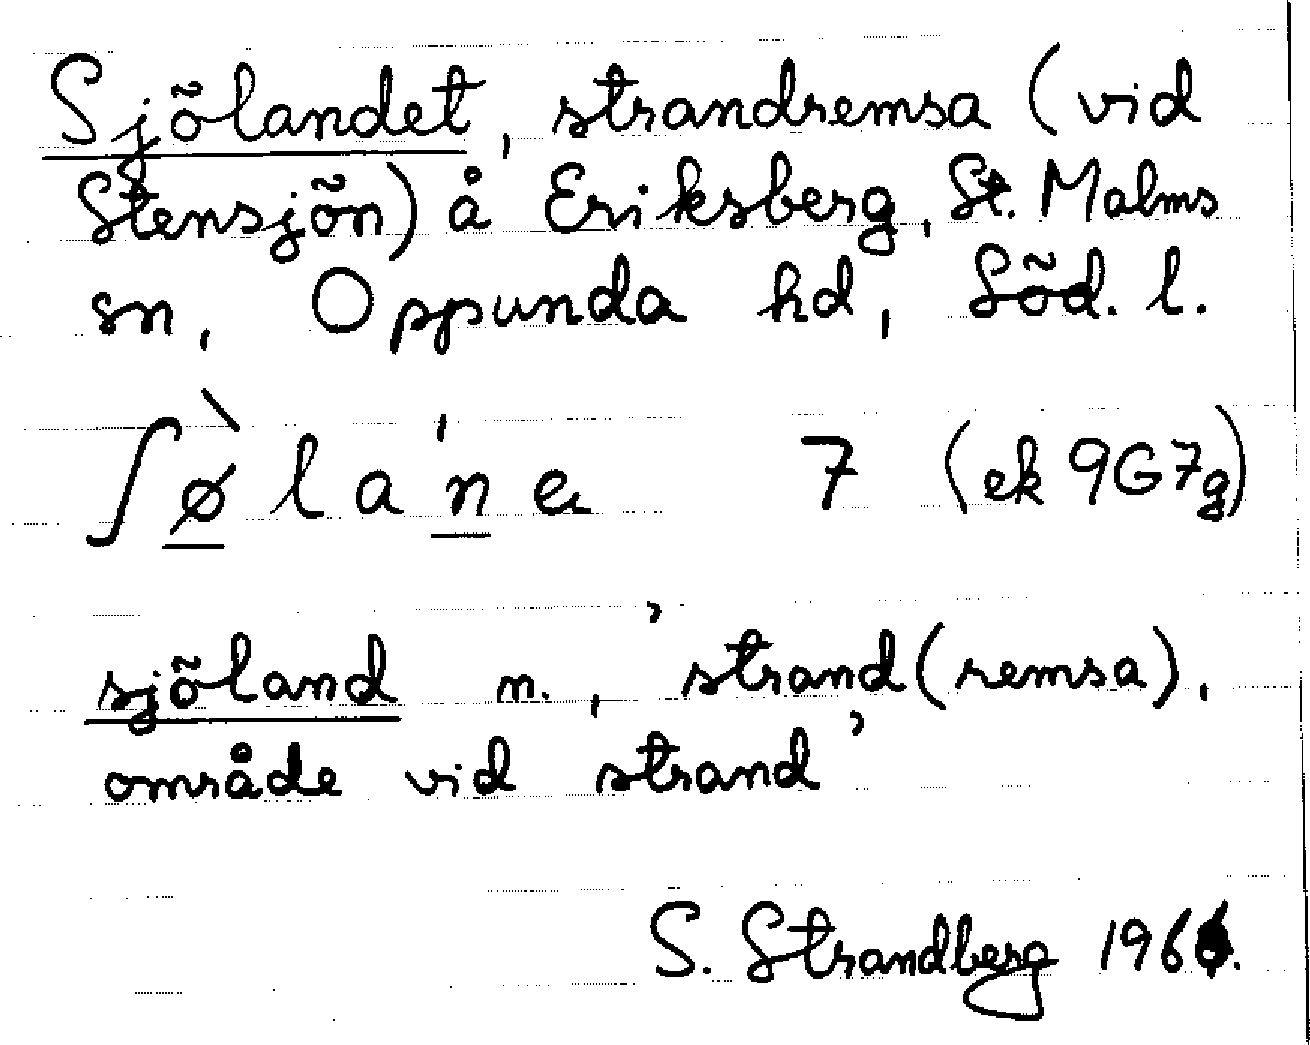 Sjölandet, strandremsa (vid
Stensjön) å Eriksberg, St. Malms
sn, Oppunda hd, Söd. l.
ʃø̀lańe 7 (ek 9G7g)
sjöland n., ’strand(remsa),
område vid strand’
S. Strandberg 1966.